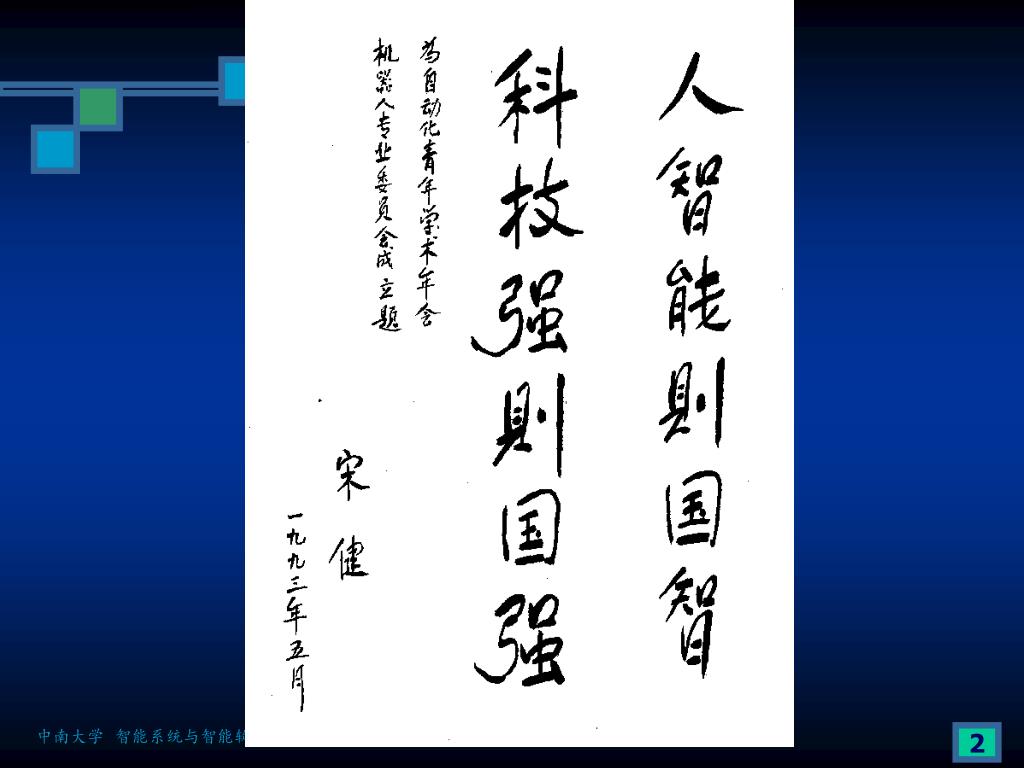 人智能则国智
科技强则国强
为自动化青年学术年会
机器人专业委员会成立题
宋健
一九九三年五月
中南大学 智能系统与智能软
2